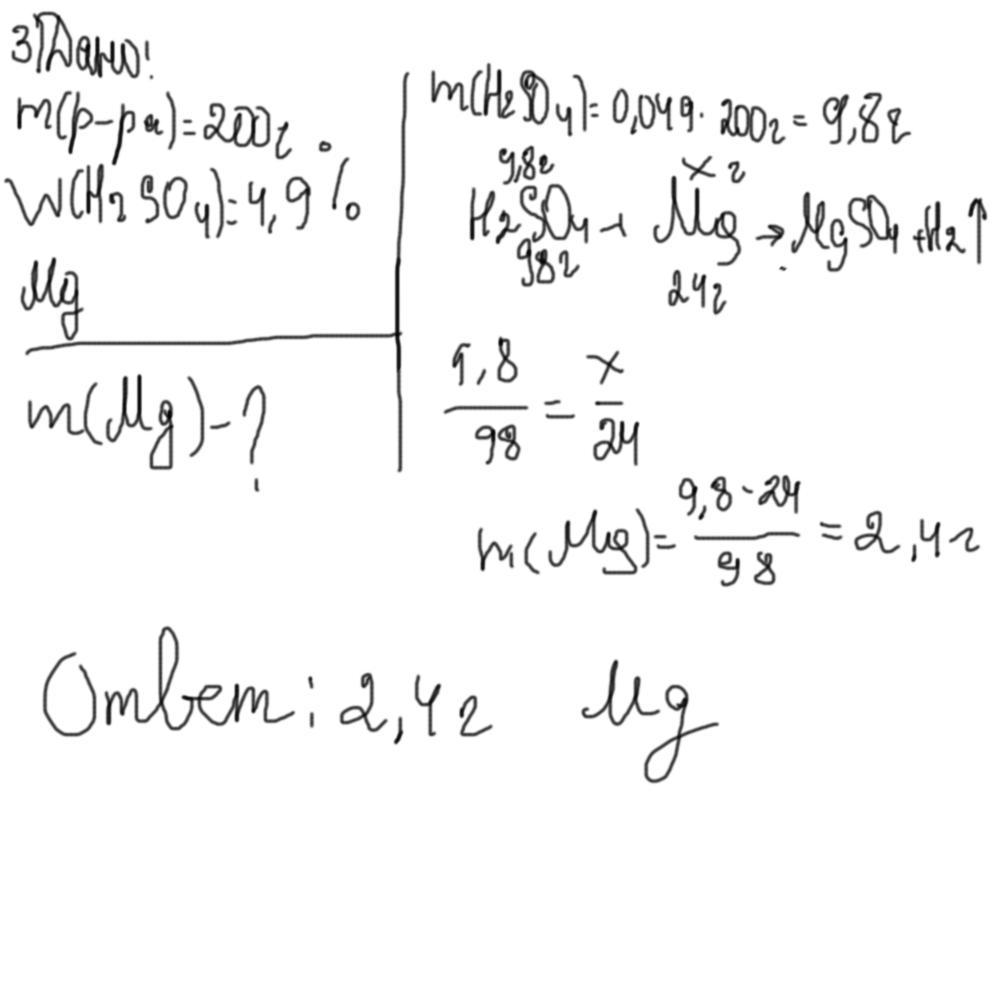 3) Дано:
m(р-ра)=200г
W(H2SO4)=4,9%
Mg
m(Mg)-?
m(H2SO4)=0,049·200г=9,8г
9,8г x г
H2SO4+Mg→MgSO4+H2↑
98г 24г
9,8/98=x/24
m(Mg)=9,8·24/98=2,4г
Ответ: 2,4г Mg